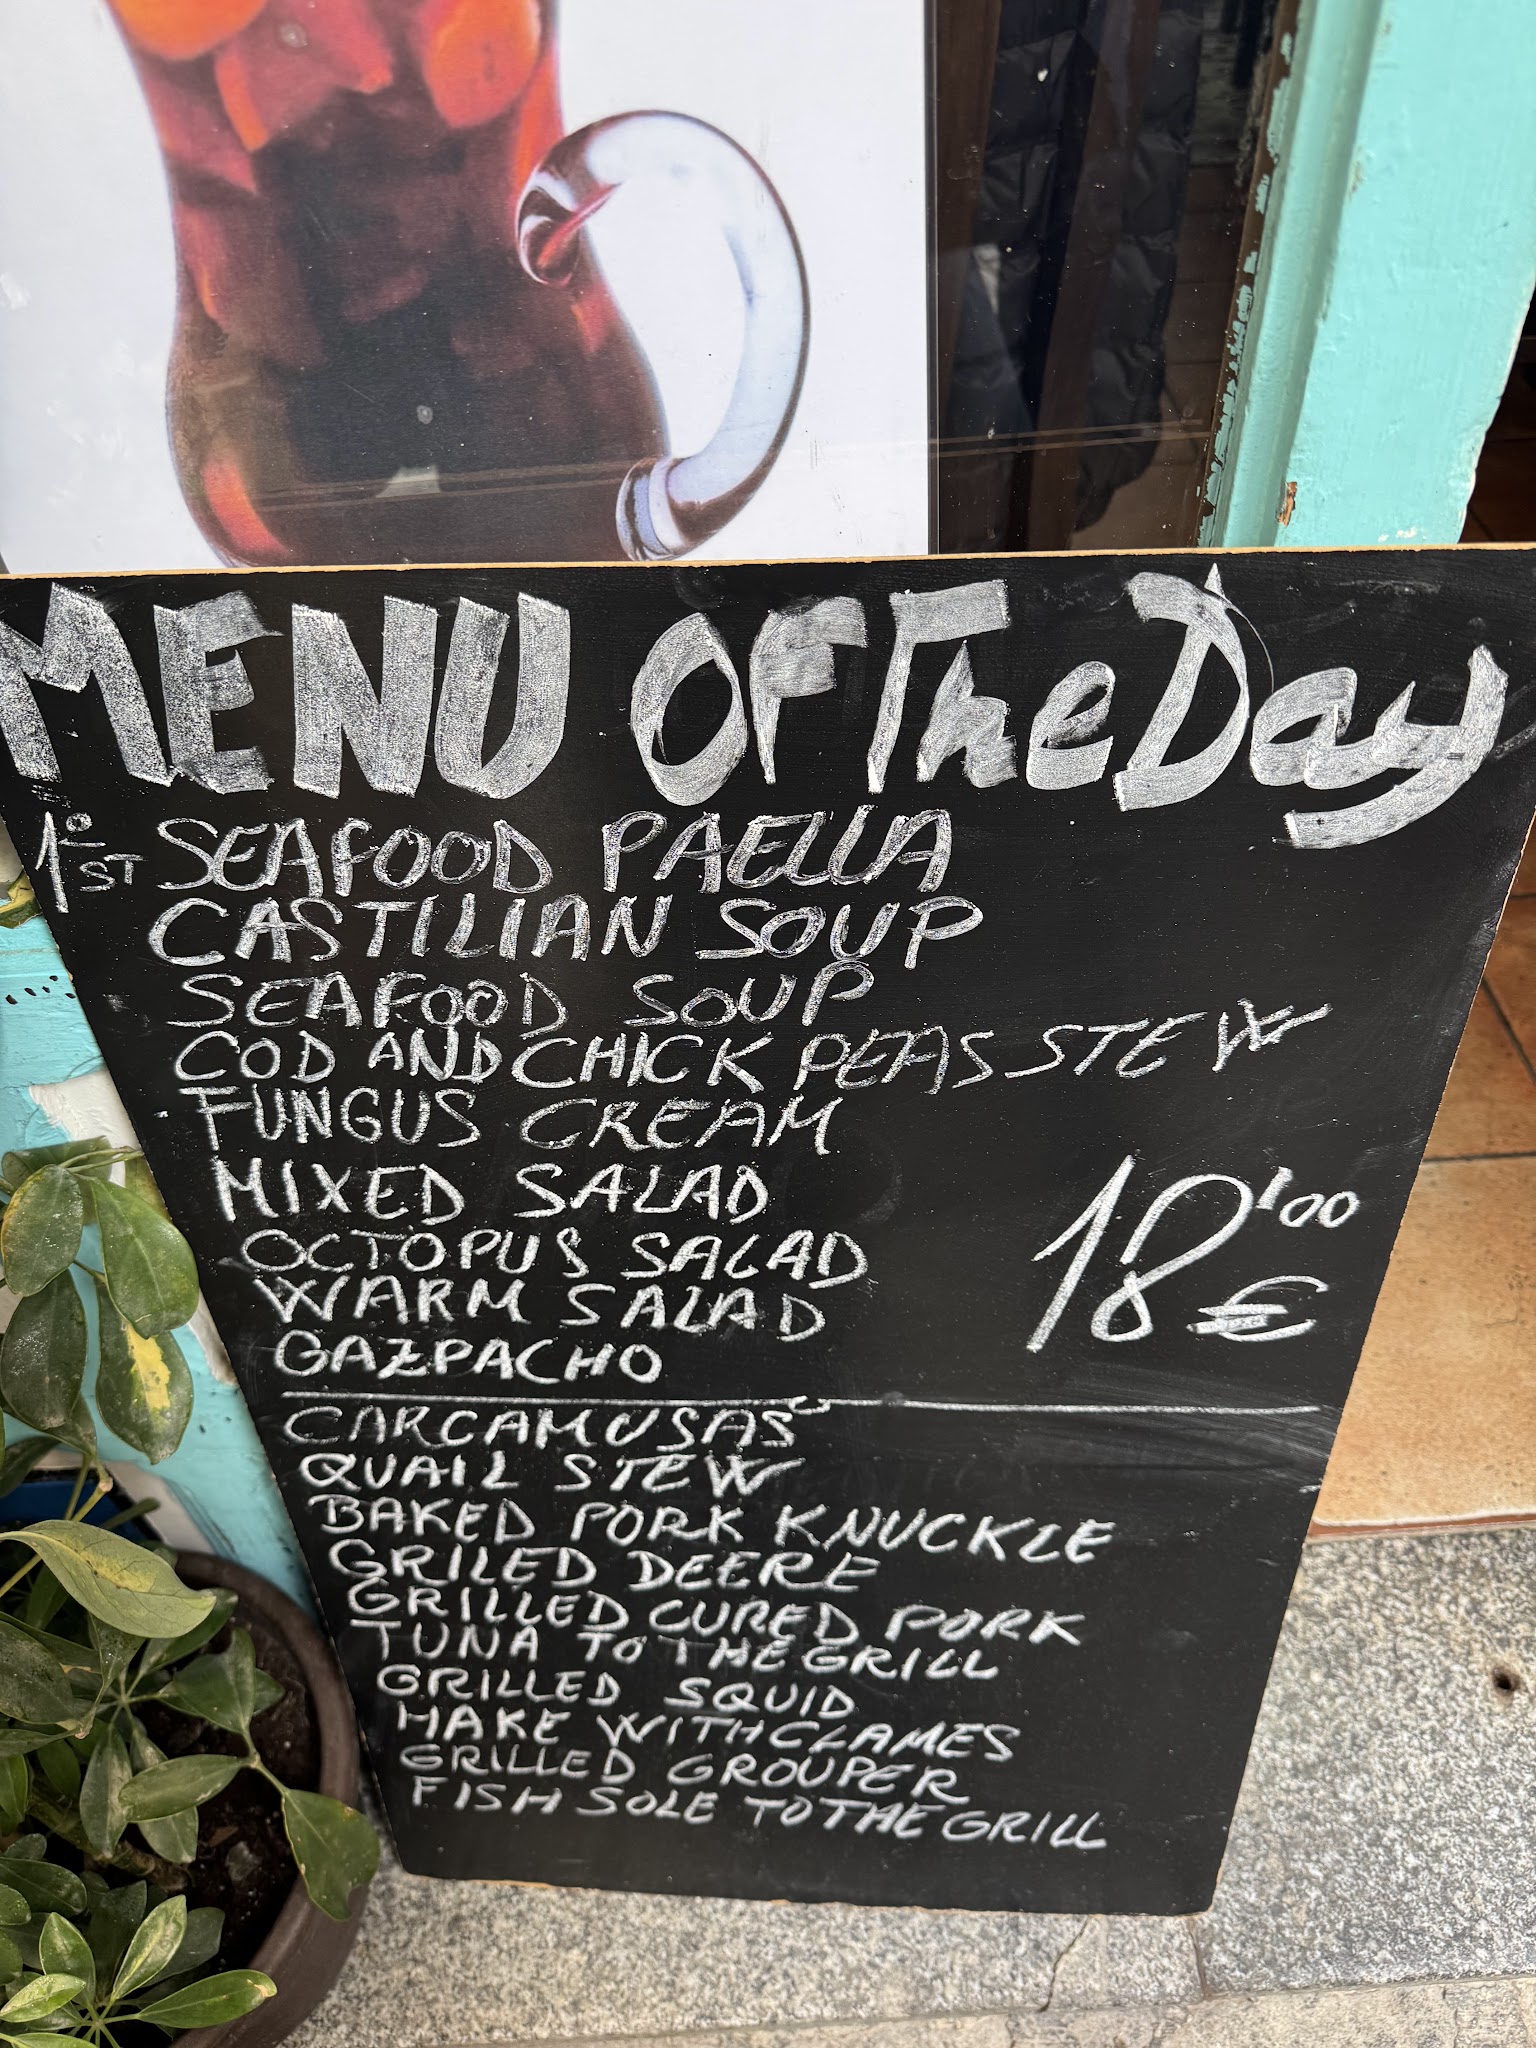 MENU OF The Day
1º ST SEAFOOD PAELLA
CASTILIAN SOUP
SEAFOOD SOUP
COD AND CHICK PEAS STEW
FUNGUS CREAM
MIXED SALAD
OCTOPUS SALAD
WARM SALAD
GAZPACHO
18'00 €
CARCAMUSAS
QUAIL STEW
BAKED PORK KNUCKLE
GRILED DEERE
GRILLED CURED PORK
TUNA TO THE GRILL
GRILLED SQUID
HAKE WITH CLAMES
GRILLED GROUPER
FISH SOLE TO THE GRILL